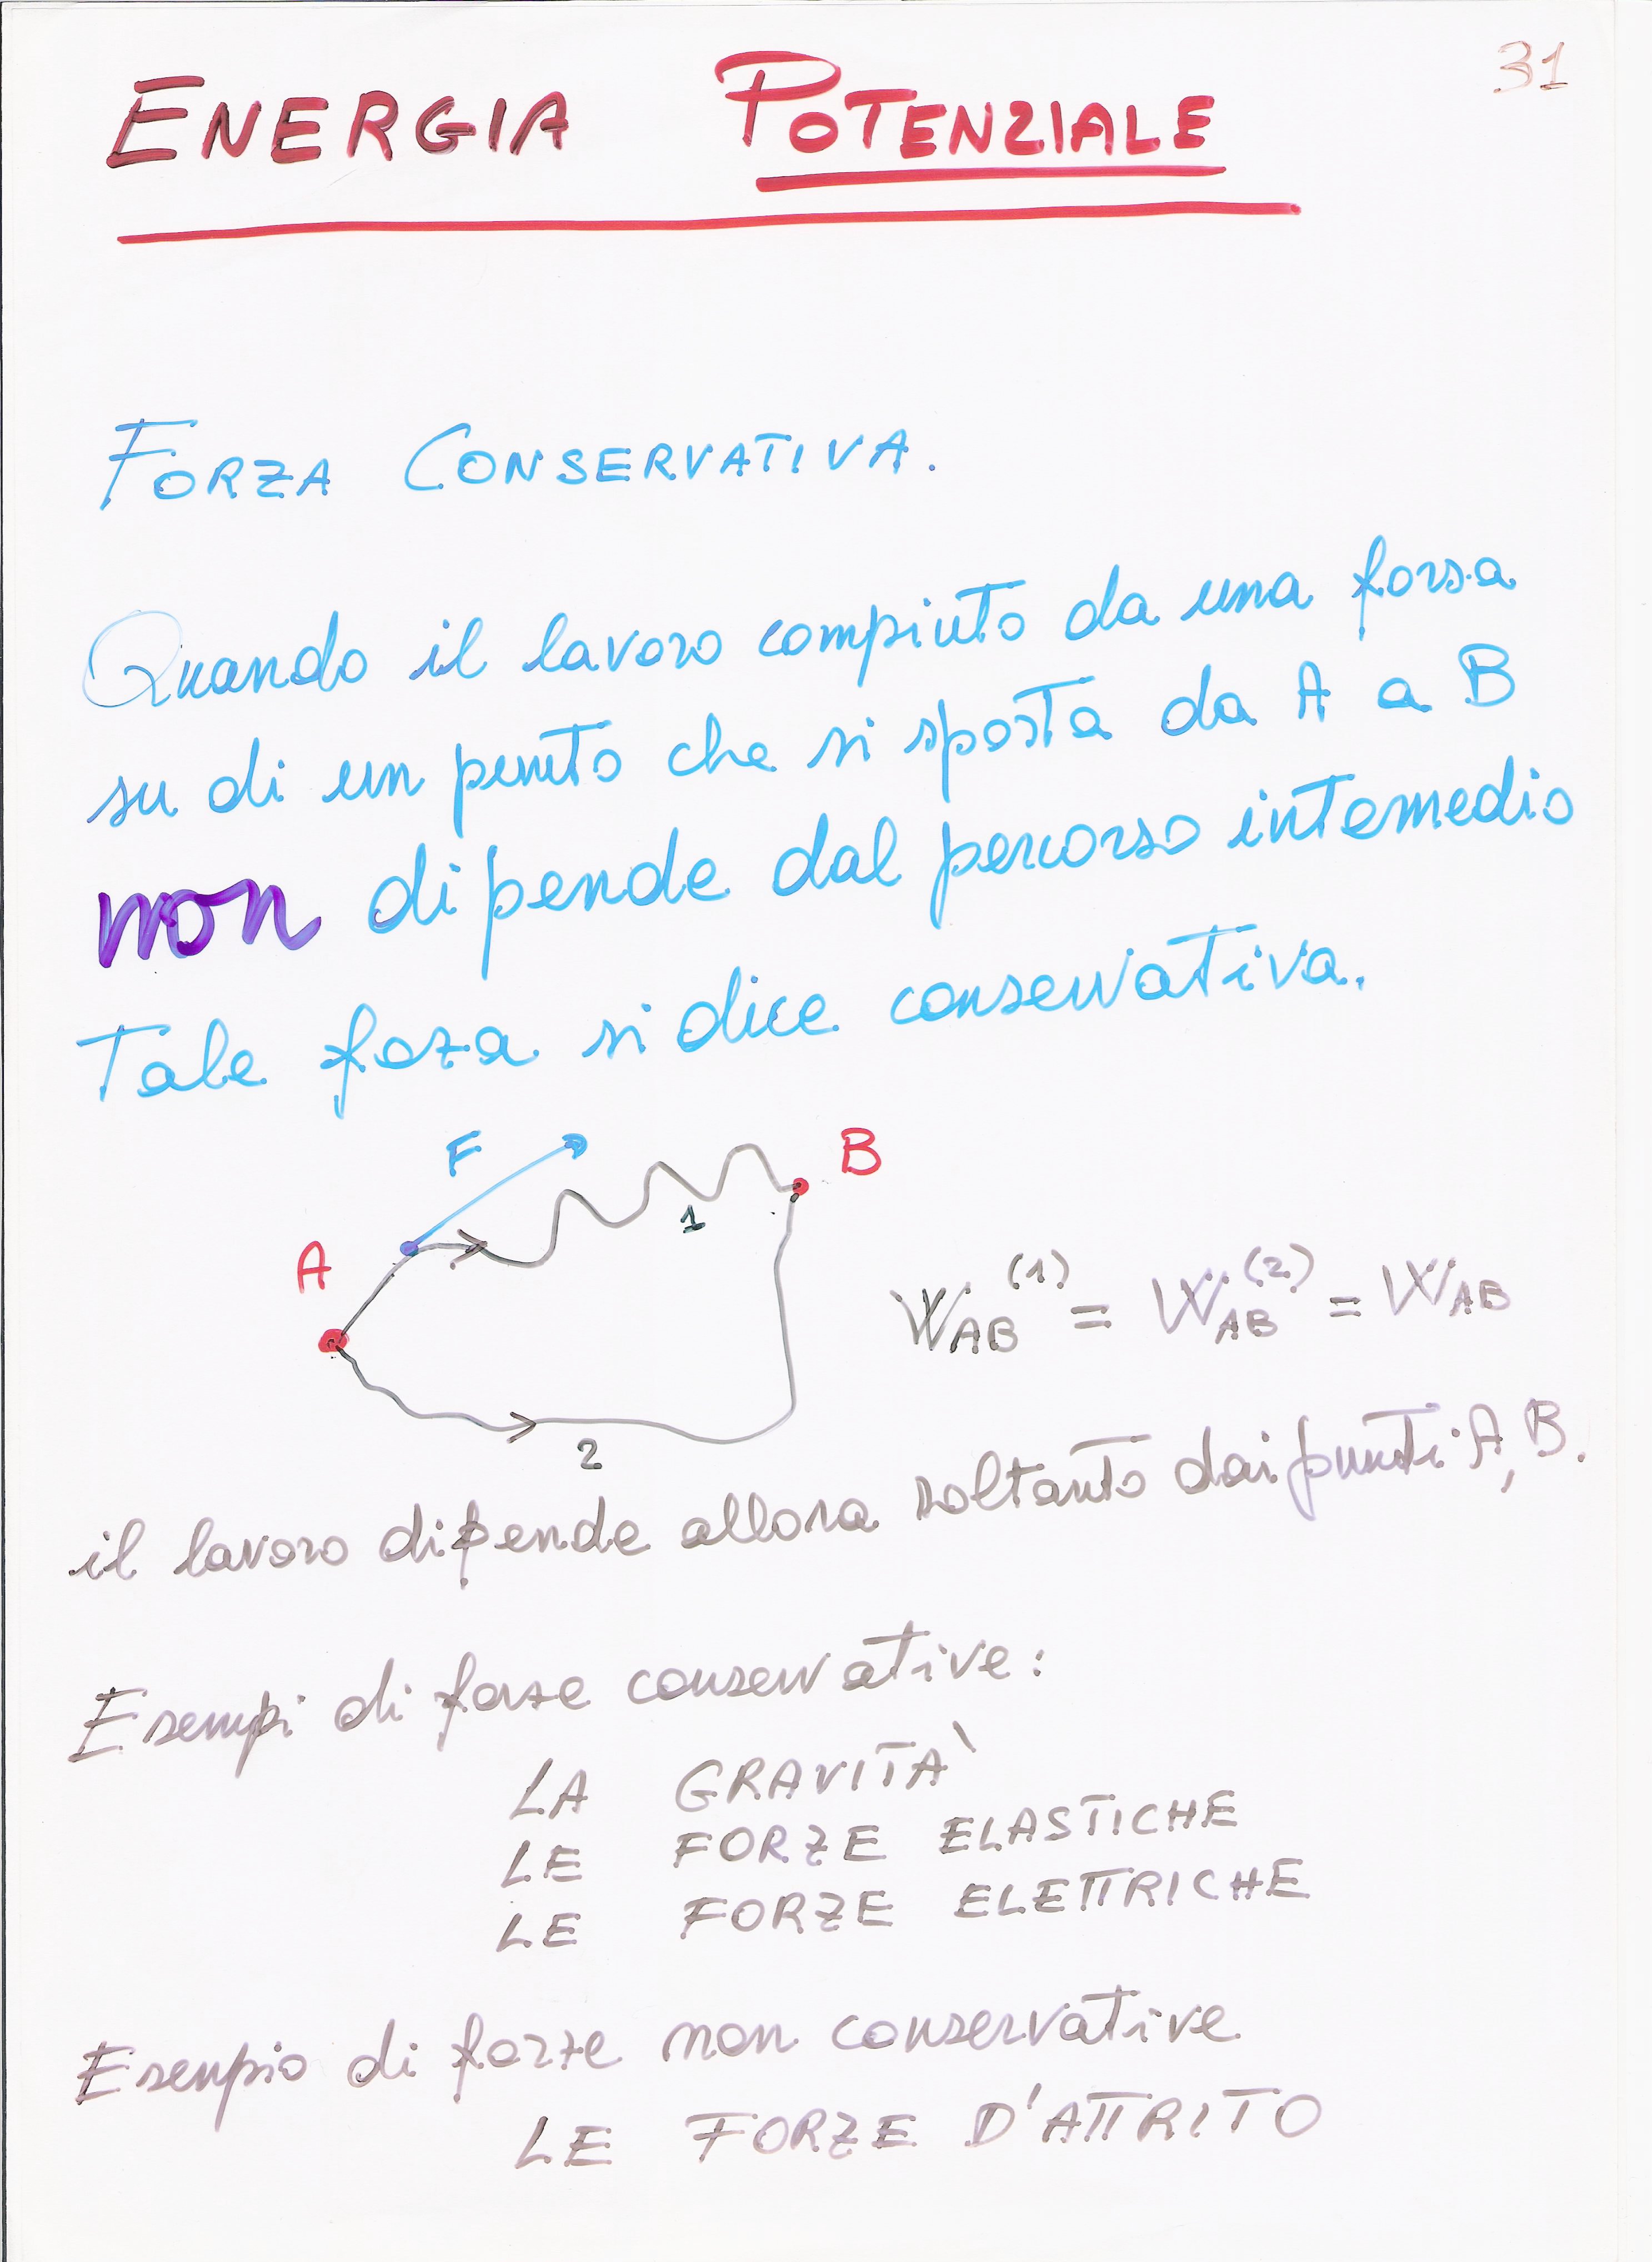 31
ENERGIA POTENZIALE
FORZA CONSERVATIVA.
Quando il lavoro compiuto da una forza
su di un punto che si sposta da A a B
non dipende dal percorso intermedio
Tale forza si dice conservativa.
F
B
1
A
W_AB^(1) = W_AB^(2) = W_AB
2
il lavoro dipende allora soltanto dai punti A, B.
Esempi di forze conservative:
LA GRAVITÀ
LE FORZE ELASTICHE
LE FORZE ELETTRICHE
Esempio di forze non conservative
LE FORZE D'ATTRITO